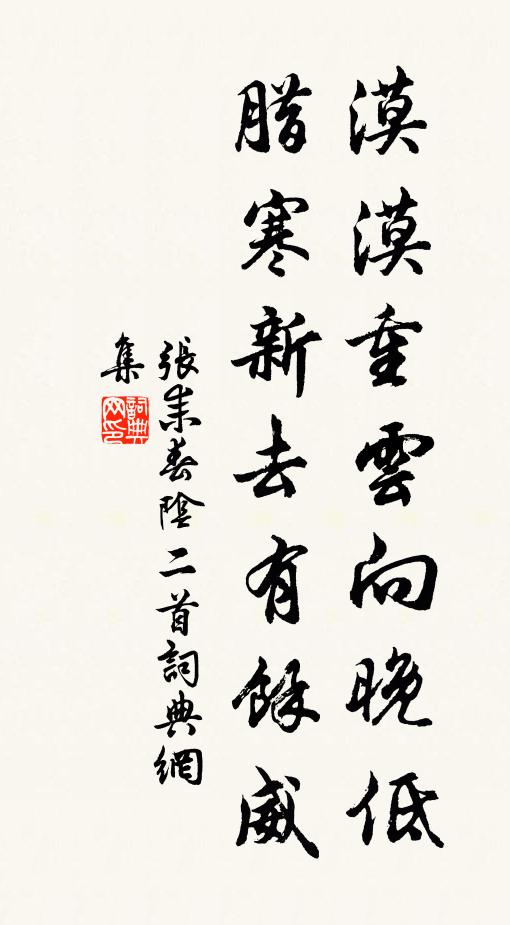 漠漠重雲向晚低
腊寒新去有餘威
張耒春陰二首詞典網
集
詞典網印